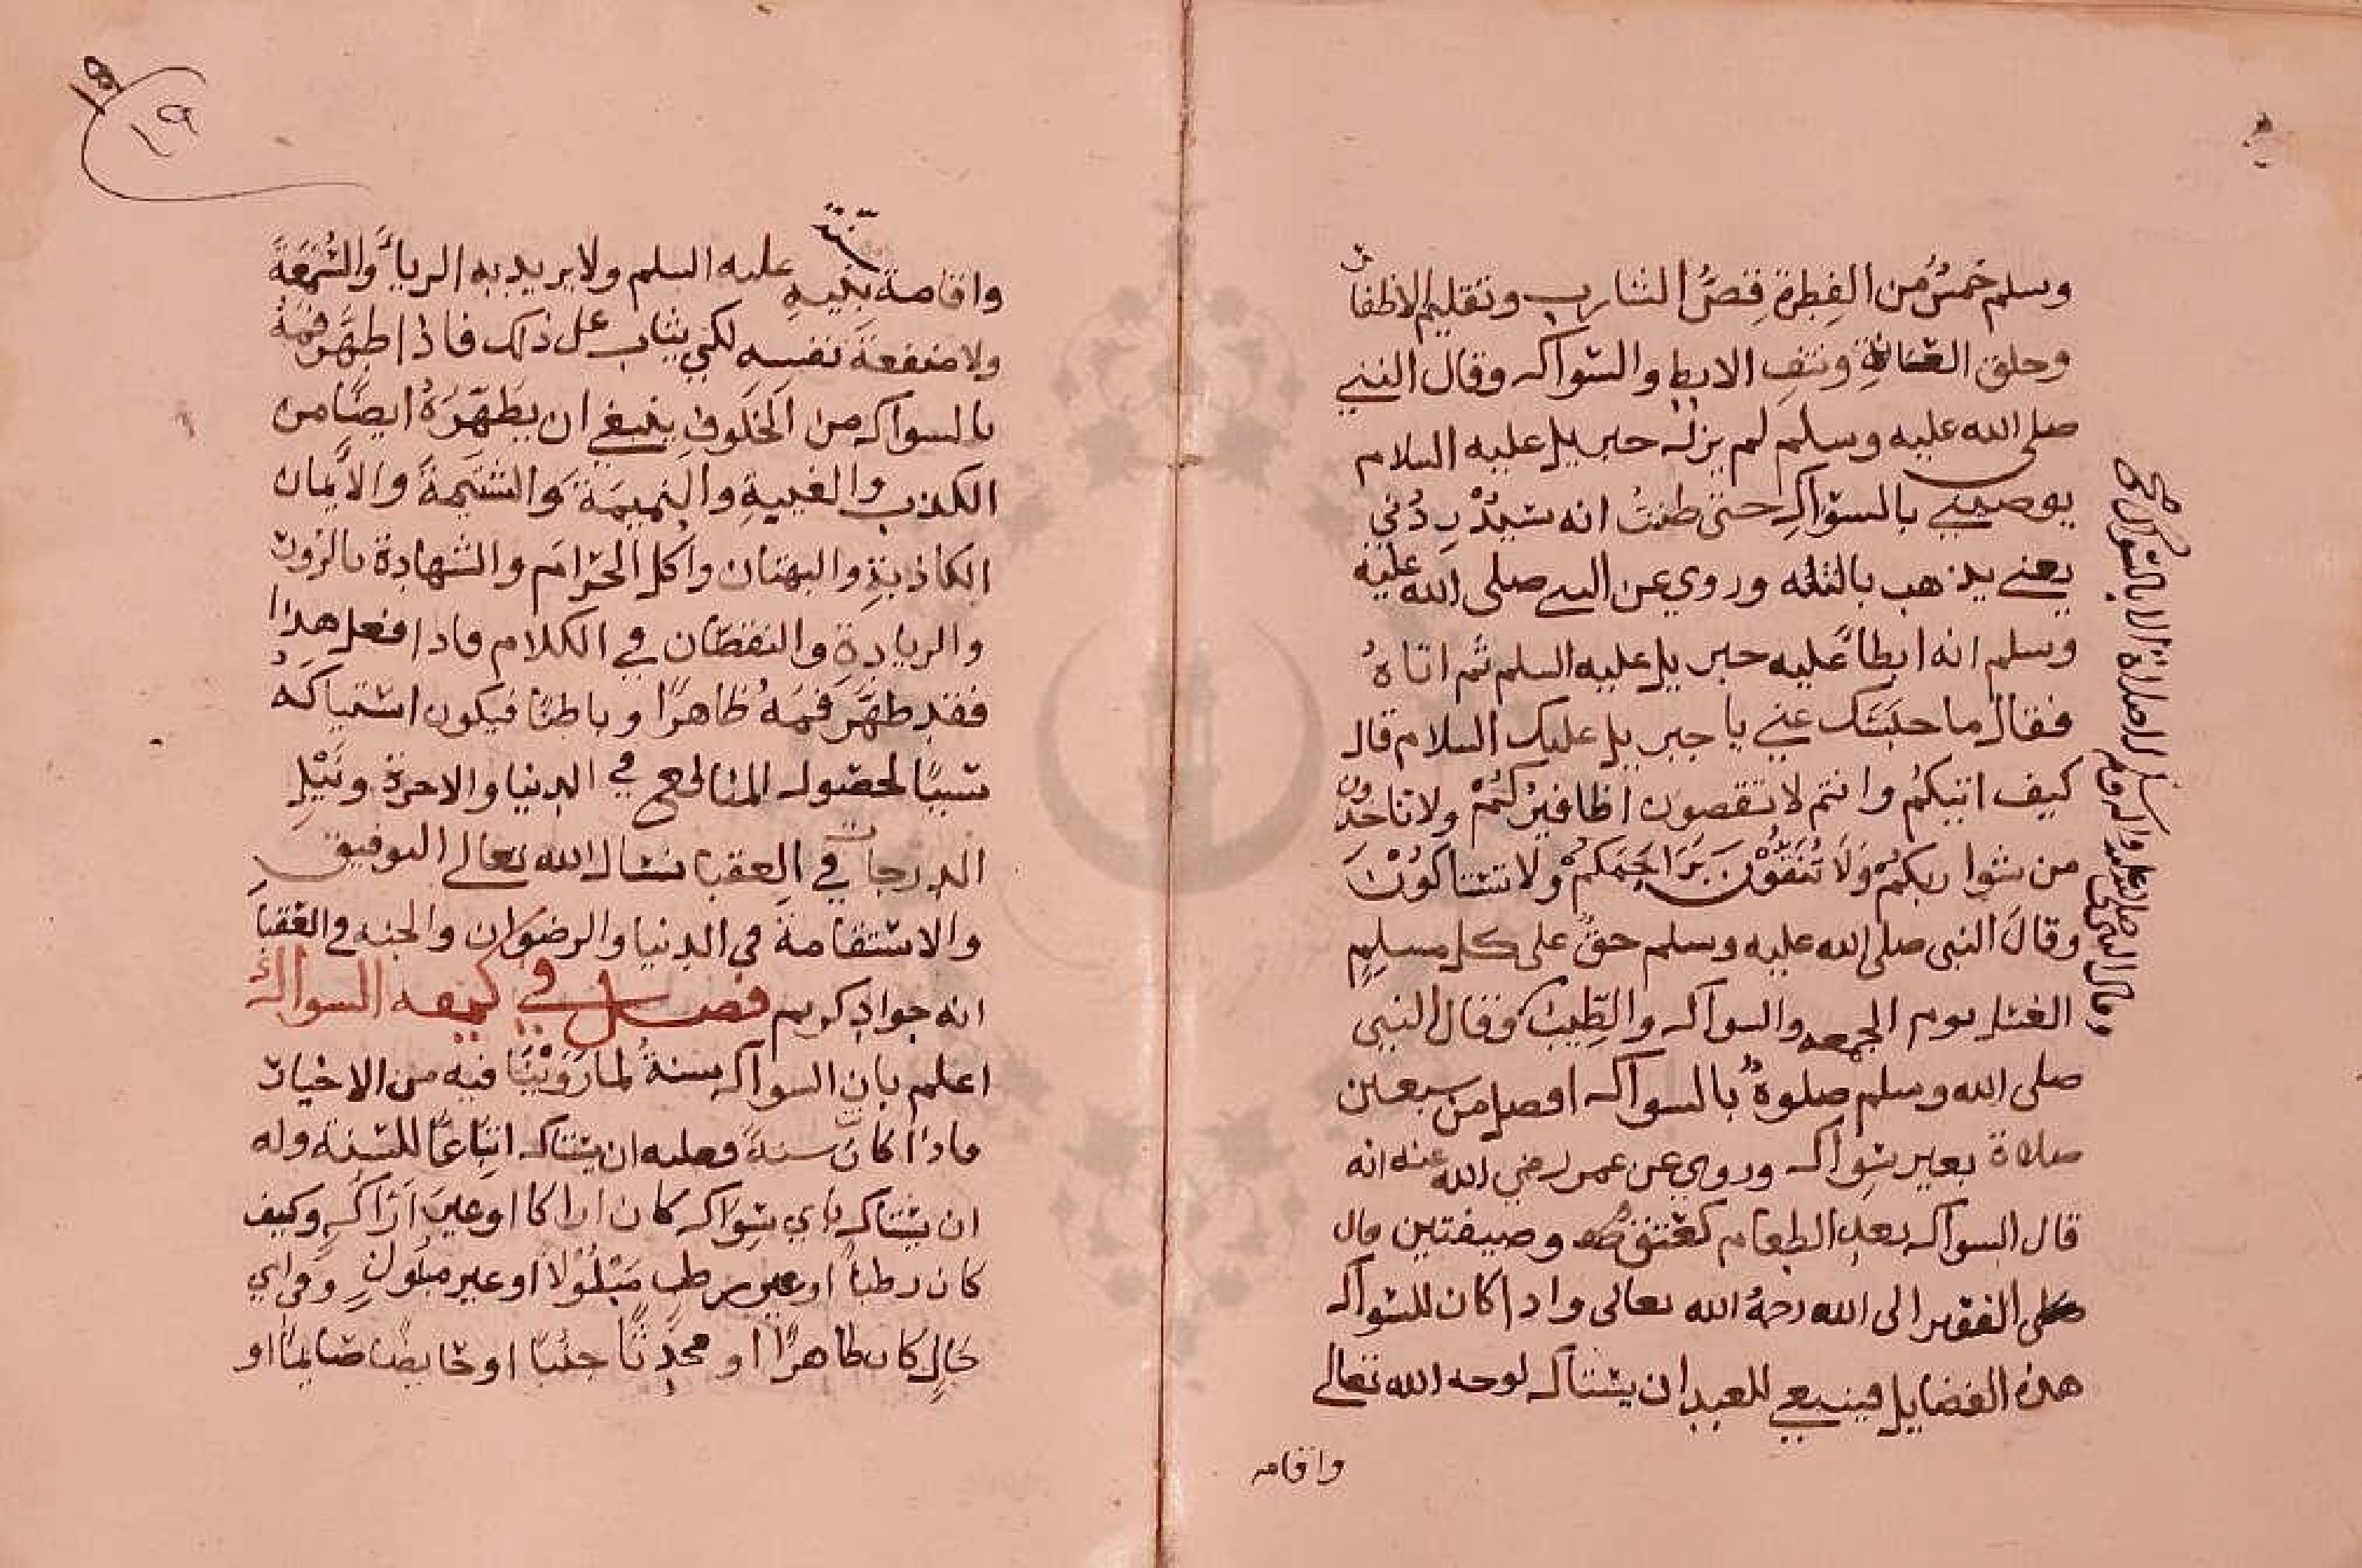 وسلم خمسٌ من الفِطرة قصُّ الشارب وتقليم الاظفار
وحلق العانة ونتف الابط والسّواك وقال النبي
صلى الله عليه وسلم لم يزل جبريل عليه السلام
يوصيني بالسّواك حتى ظننتُ انه سَيُدْرِدُني
يعني يذهب بالثلثه وروي عن النبي صلى الله عليه
وسلم انه ابطأ عليه جبريل عليه السلم ثم اتاهُ
فقال ما حبَسَك عني يا جبريل عليك السلام قال
كيف اتيكمُ وانتم لا تقصون اظافيركُمْ ولا تاخذون
من شواربكمْ وَلَا تُنَقّوْنَ بَرَاجِمَكمْ ولا تستاكوُنَ
وقالَ النبي صلى الله عليه وسلم حقٌ على كل مسلِمٍ
الغسل يوم الجمعه والسواك والطّيبُ وقال النبي
صلى الله وسلم صلوةٌ بالسواك افضل من سبعين
صلاة بغير سِواك وروي عن عمر رضي الله عنه انه
قال السواك بعد الطعام كعتق وصيفتين قال
الفقير الى الله رحمهُ الله تعالى واذا كان للسّواك
هذه الفضايل فينبغي للعبد ان يستاك لوجه الله تعالى
واقامه
واقامة عليه السلم ولا يريد به الرياءَ والسُّمْعَةَ
ولا منفعةَ نفسه لكي يثاب على ذلك فاذا طهَّر فمَهُ
بالسواك من الخَلوفِ ينبغي ان يطَهّرَهُ ايضًا من
الكذب والغيبةِ والنميمَة والشتيمةَ والأَيمان
الكاذبةِ والبهتان واكل الحَرامَ والشهادة بالزور
والزيادةِ والنقصَان في الكلام فاذا فعل هذا
فقد طهَّرَ فمَهُ ظاهرًا وباطنًا فيكون استياكَهُ
سَببًا لحصُول المناجح في الدنيا والاخرة ونَيْلِ
الدرجات في العقبا نسال الله تعالى التوفيق
والاستقامةَ في الدنيا والرضوان والجنه في العقبا
انه جواد كريم فصل في كيفيه السواك
اعلم بان السواك سنةُ لما رَوَيْنَا فيه من الاخبار
فاذا كان سنةً فعليه ان يستاك اتباعًا للسّنة وله
ان يستاك باي سِواك كان اراكا او غيرَ ارَاكٍ وكيف
كان رطبا او غير رطبٍ مَبْلُولًا او غير مبلولٍ وفي اي
حَالٍ كان طاهرًا او محدِثًا جنُبًا او حَايضًا صَايمًا او
١٩
١٩